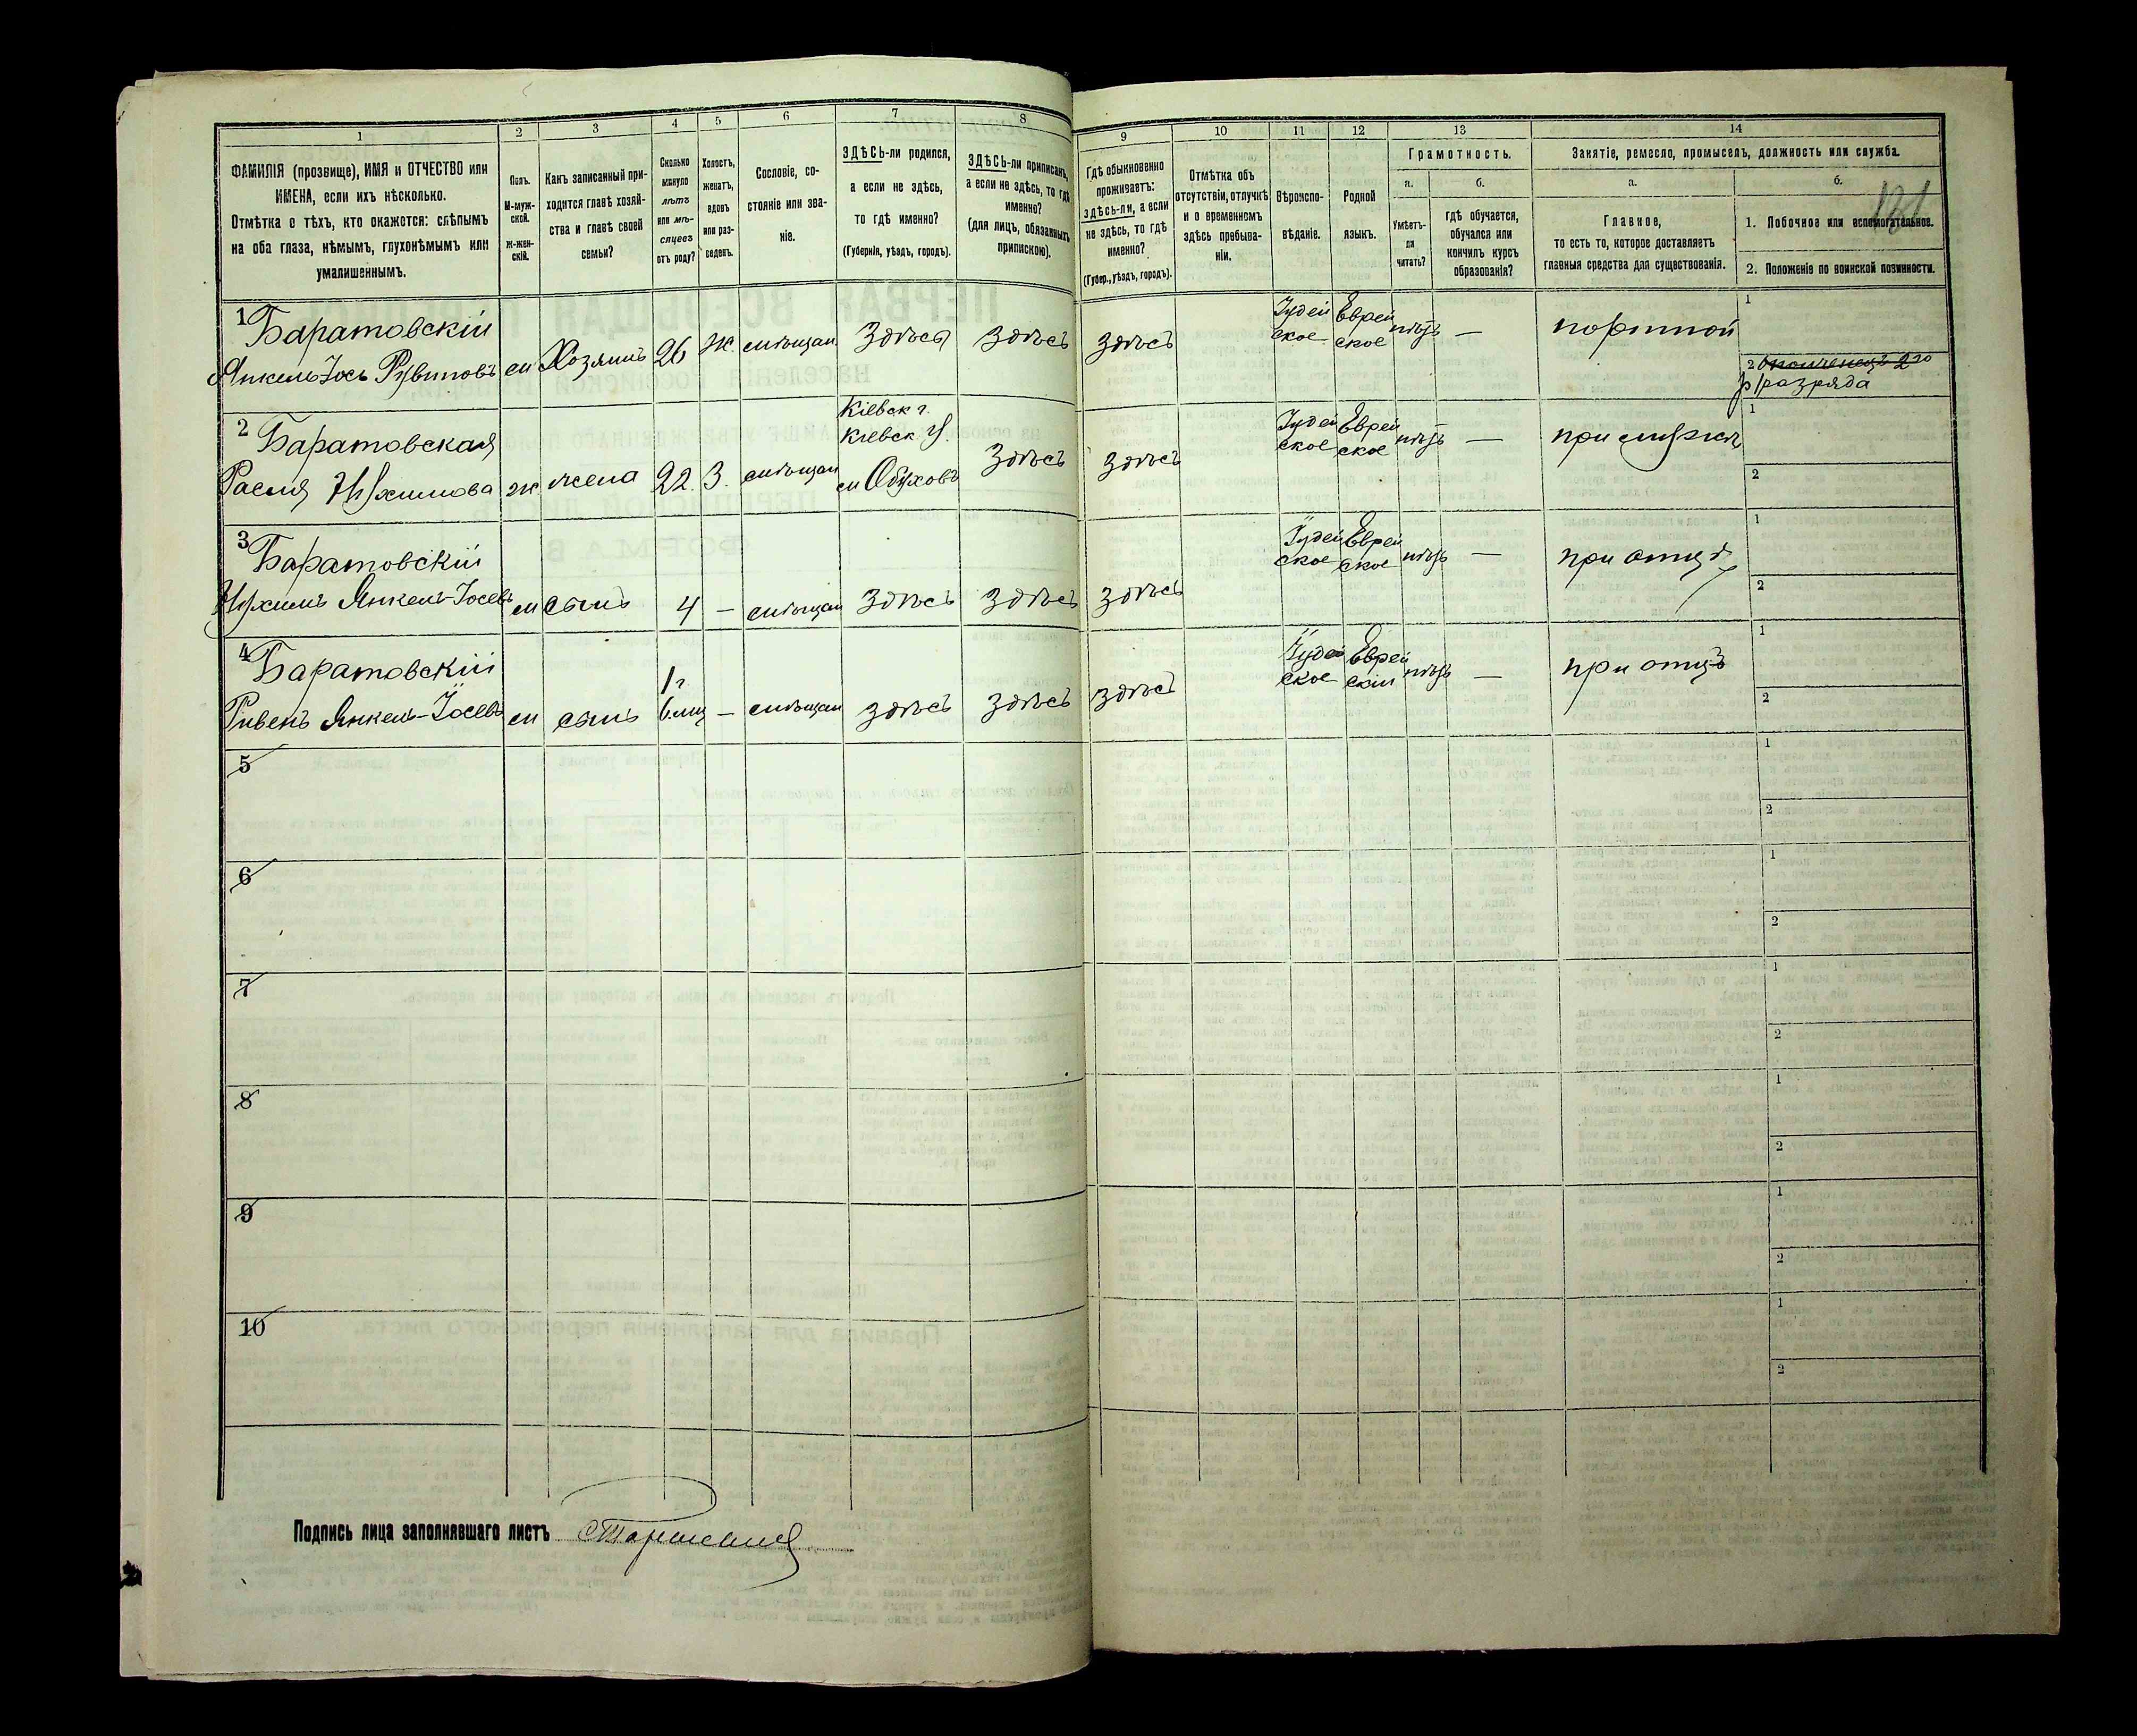 1 2 3 4 5 6 7 8 9 10 11 12 13 14
ФАМИЛІЯ (прозвище), ИМЯ и ОТЧЕСТВО или
ИМЕНА, если ихъ нѣсколько.
Отмѣтка о тѣхъ, кто окажется: слѣпымъ
на оба глаза, нѣмымъ, глухонѣмымъ или
умалишеннымъ.
Полъ.
М-муж-
ской.
Ж-жен-
скій.
Какъ записанный при-
ходится главѣ хозяй-
ства и главѣ своей
семьи?
Сколько
минуло
лѣтъ
или мѣ-
сяцевъ
отъ роду?
Холостъ,
женатъ,
вдовъ
или раз-
веденъ.
Сословіе, со-
стояніе или зва-
ніе.
ЗДѢСЬ-ли родился,
а если не здѣсь,
то гдѣ именно?
(Губернія, уѣздъ, городъ).
ЗДѢСЬ-ли приписанъ,
а если не здѣсь, то гдѣ
именно?
(для лицъ, обязанныхъ
припискою).
Гдѣ обыкновенно
проживаетъ:
здѣсь-ли, а если
не здѣсь, то гдѣ
именно?
(Губер., уѣздъ, городъ).
Отмѣтка объ
отсутствіи, отлучкѣ
и о временномъ
здѣсь пребыва-
ніи.
Вѣроиспо-
вѣданіе.
Родной
языкъ.
Грамотность.
а.
Умѣетъ-
ли
читать?
б.
гдѣ обучается,
обучался или
кончилъ курсъ
образованія?
Занятіе, ремесло, промыселъ, должность или служба.
а.
Главное,
то есть то, которое доставляетъ
главныя средства для существованія.
б.
131
1. Побочное или вспомогательное.
2. Положеніе по воинской повинности.
1 Баратовскій
Янкель-Іось Рувиновъ м Хозяинъ 26 ж. мѣщан здѣсь здѣсь здѣсь Іудей Еврей нѣтъ — портной 1
ское ское
2 Ополченецъ 2го
разряда
2 Баратовская
Киевск г.
Киевск у.
м Обуховъ
Расия Нухимова ж жена 22 З. мѣщан здѣсь здѣсь Іудей Еврей нѣтъ — при мужѣ 1
ское ское
2
3 Баратовскій
Нухимъ Янкель-Іосевъ м сынъ 4 — мѣщан здѣсь здѣсь здѣсь Іудей Еврей нѣтъ — при отцѣ 1
ское ское
2
4 Баратовскій
1 г
Ривенъ Янкель-Іосевъ м сынъ 6 мц — мѣщан здѣсь здѣсь здѣсь Іудей Еврей нѣтъ — при отцѣ 1
ское скій
2
5 1
2
6 1
2
7 1
2
8 1
2
9 1
2
10 1
2
Подпись лица заполнявшаго листъ